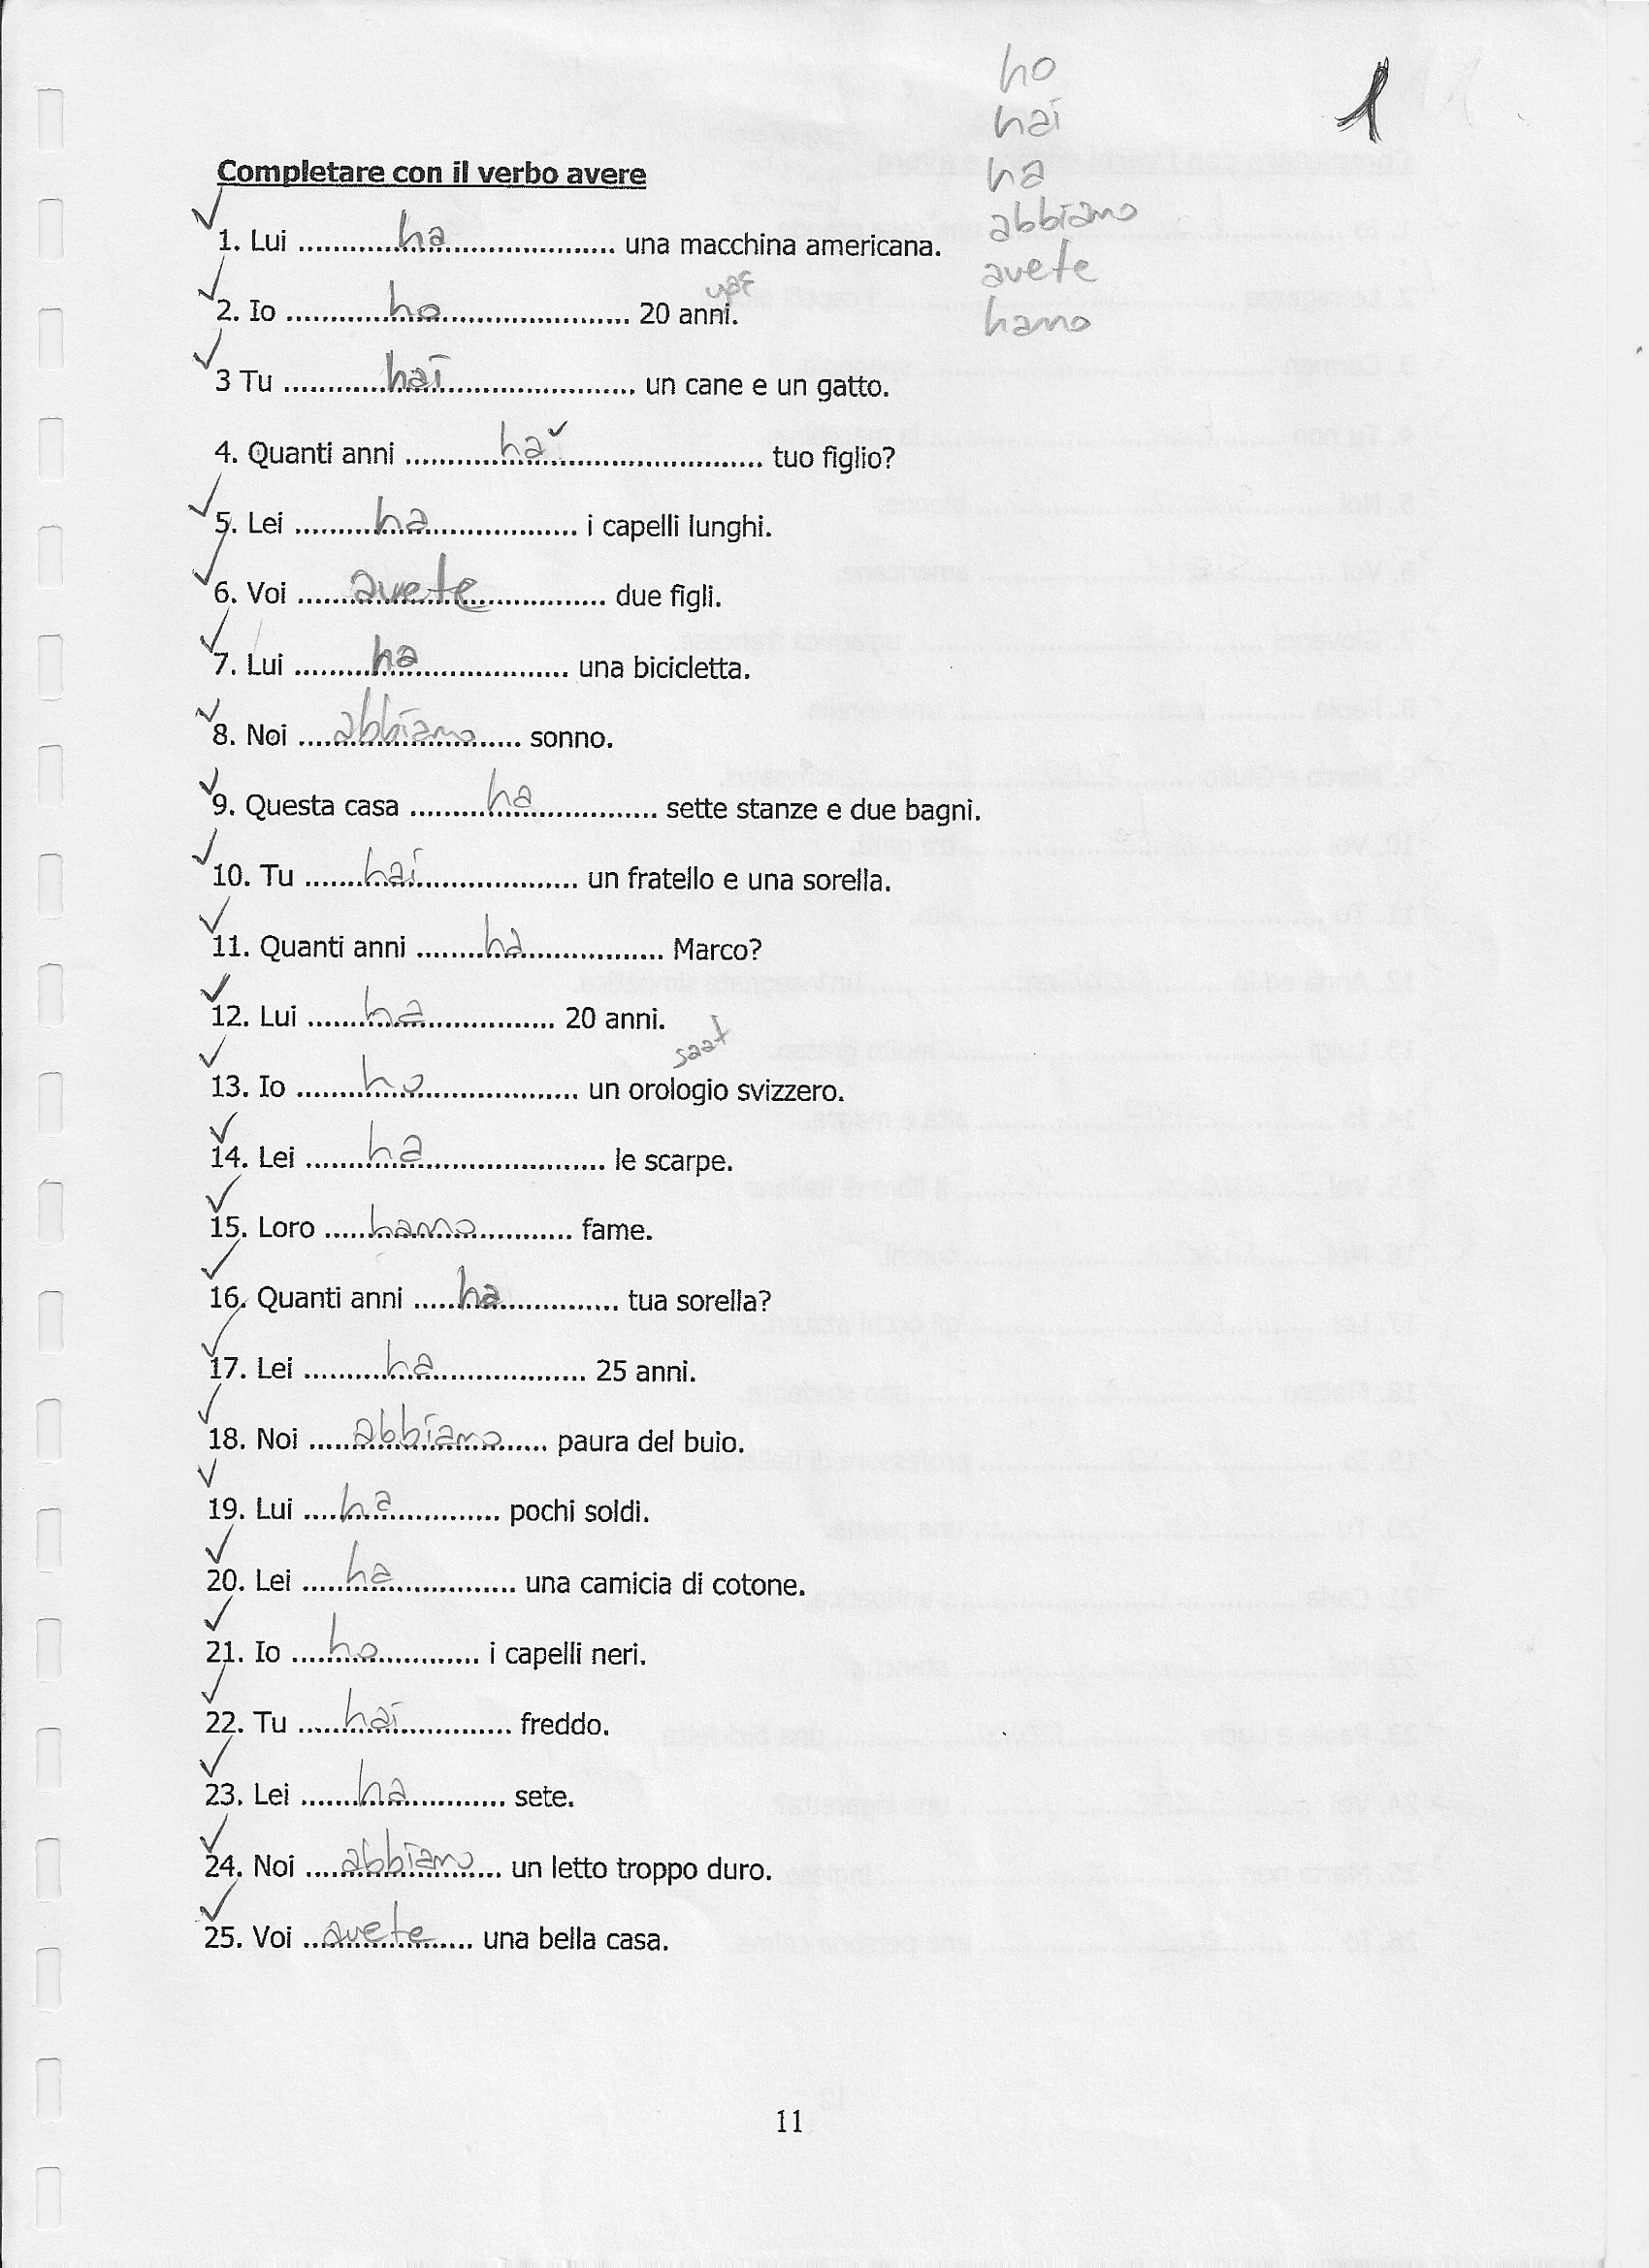 ho
1
hai
ha
abbiamo
avete
hanno
Completare con il verbo avere
1. Lui ......ha...... una macchina americana.
yaş
2. Io ......ho...... 20 anni.
3 Tu ......hai...... un cane e un gatto.
4. Quanti anni ......ha...... tuo figlio?
5. Lei ......ha...... i capelli lunghi.
6. Voi ......avete...... due figli.
7. Lui ......ha...... una bicicletta.
8. Noi ......abbiamo...... sonno.
9. Questa casa ......ha...... sette stanze e due bagni.
10. Tu ......hai...... un fratello e una sorella.
11. Quanti anni ......ha...... Marco?
12. Lui ......ha...... 20 anni.
saat
13. Io ......ho...... un orologio svizzero.
14. Lei ......ha...... le scarpe.
15. Loro ......hanno...... fame.
16. Quanti anni ......ha...... tua sorella?
17. Lei ......ha...... 25 anni.
18. Noi ......abbiamo...... paura del buio.
19. Lui ......ha...... pochi soldi.
20. Lei ......ha...... una camicia di cotone.
21. Io ......ho...... i capelli neri.
22. Tu ......hai...... freddo.
23. Lei ......ha...... sete.
24. Noi ......abbiamo...... un letto troppo duro.
25. Voi ......avete...... una bella casa.
11